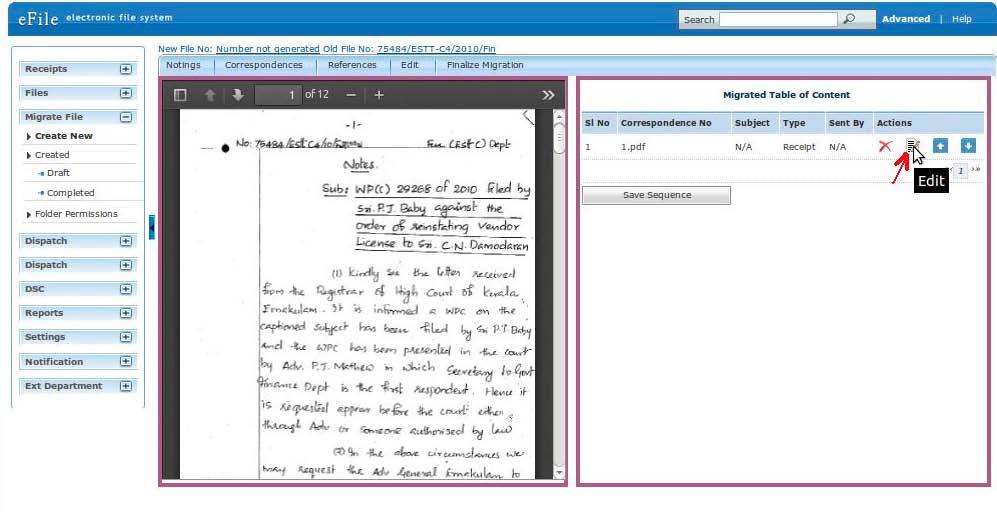 eFile electronic file system
Search
Advanced | Help
New File No: Number not generated Old File No: 75484/ESTT-C4/2010/Fin
Notings Correspondences References Edit Finalize Migration
Receipts
Files
Migrate File
Created New
Created
Draft
Completed
Folder Permissions
Dispatch
Dispatch
DSC
Reports
Settings
Notification
Ext Department
1 of 12
-1-
No: 75484/Est C4/10/Fin Fin (Est C) Dept
Notes
Sub: WP(C) 29268 of 2010 filed by
Sri. P.J. Baby against the
order of reinstating Vendor
License to Sri. C.N. Damodaran
(1) Kindly see the letter received
from the Registrar of High Court of Kerala,
Ernakulam. It is informed a WPC on the
captioned subject has been filed by Sri P.J Baby
and the WPC has been presented in the court
by Adv. P.J. Mathew in which Secretary to Govt
Finance Dept is the first respondent. Hence it
is requested appear before the court either
through Adv or someone authorised by law
(2) In the above circumstances we
may request the Adv General Ernakulam to
Migrated Table of Content
Sl No Correspondence No Subject Type Sent By Actions
1 1.pdf N/A Receipt N/A
1
Edit
Save Sequence